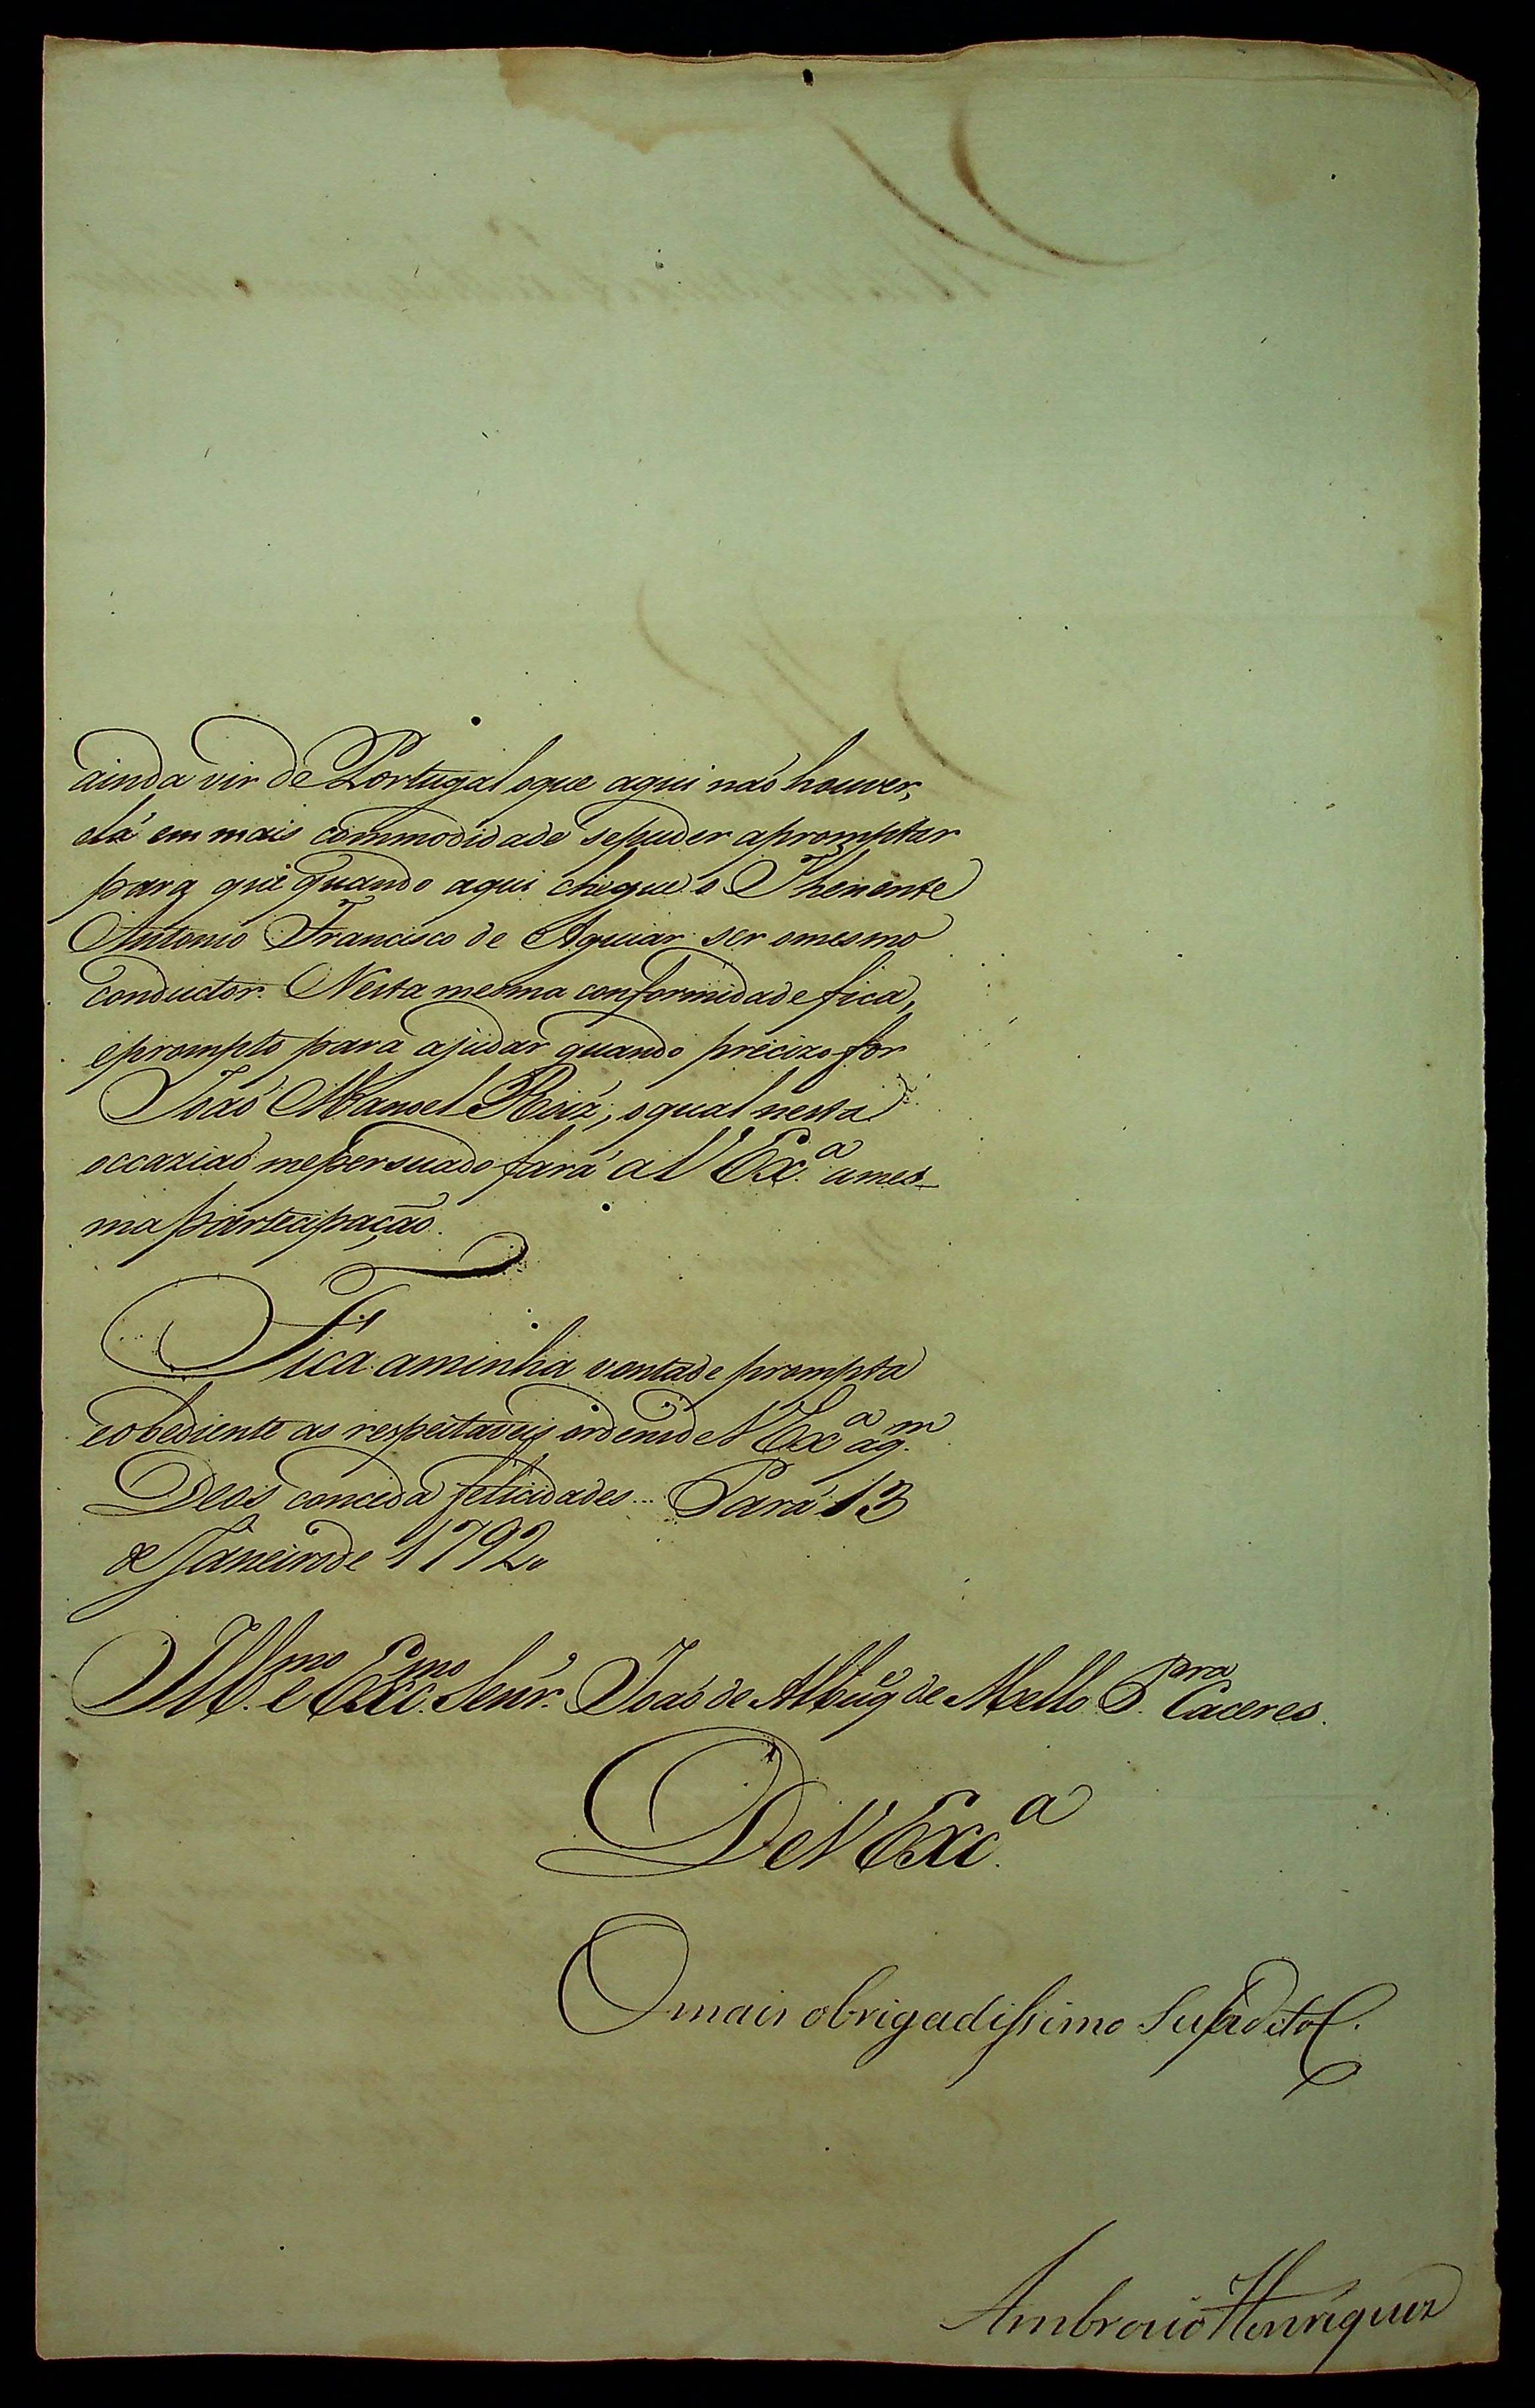 ainda vir de Portugal oque aqui naõ houver,
elá em mais commodidade sepuder apromptar
para que quando aqui chegue o Thenente
Antonio Francisco de Aguiar ser omesmo
conductor. Nesta mesma conformidade fica,
eprompto para ajudar quando precizo for
Joaõ Manoel Roiz, oqual nesta
occaziaõ mepersuado fará a V Ex.ª ames-
ma partecipação.
Fica aminha vontade prompta
eobediente as respeitaveis ordens de V Exª aq.m
Deos conceda felicidades... Pará 13
de Janeiro de 1792.
Ill.mo e Exc.mo Senr. Joaõ de Albuq de Mello P.ra Caceres.
De V Exc.ª
O mais obrigadissimo Subdito
Ambrozio Henriquez